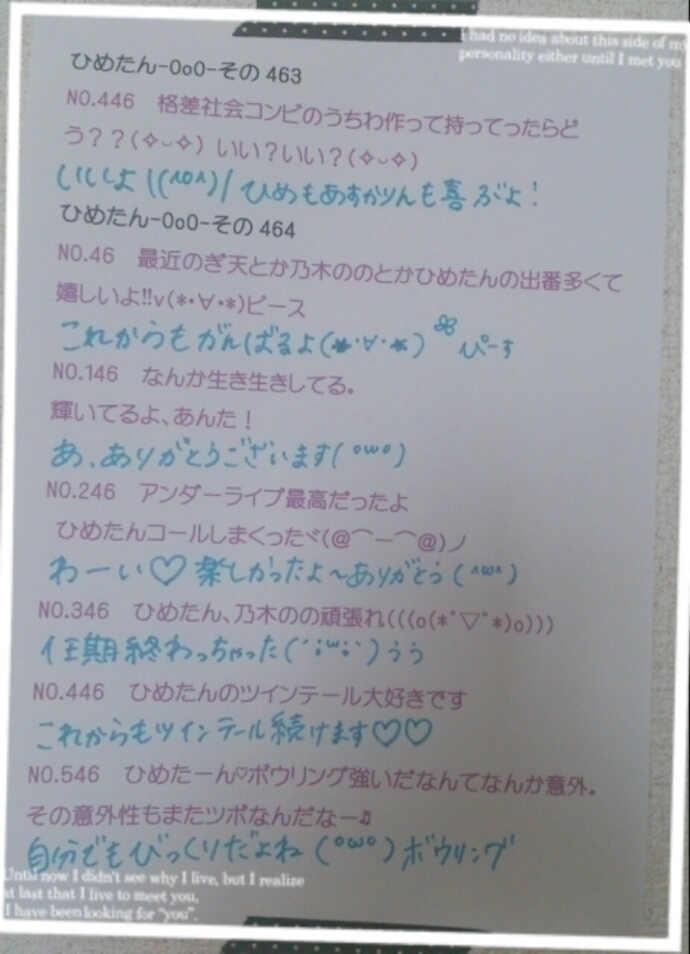 I had no idea about this side of my
personality either until I met you
ひめたん-OoO-その463
NO.446 格差社会コンビのうちわ作って持ってったらど
う??(✧ᴗ✧) いい?いい?(✧ᴗ✧)
いいよ\((^o^)/ ひめもあすかりんも喜ぶよ!
ひめたん-OoO-その464
NO.46 最近のぎ天とか乃木ののとかひめたんの出番多くて
嬉しいよ!!v(*･∀･*)ピース
これからもがんばるよ(*･∀･*) ぴーす
NO.146 なんか生き生きしてる。
輝いてるよ、あんた!
あ、ありがとうございます(°ω°)
NO.246 アンダーライブ最高だったよ
ひめたんコールしまくったヾ(@⌒ー⌒@)ノ
わーい♡楽しかったよ〜ありがとう(^ω^)
NO.346 ひめたん、乃木のの頑張れ(((o(*ﾟ▽ﾟ*)o)))
任期終わっちゃった(´;ω;`)うぅ
NO.446 ひめたんのツインテール大好きです
これからもツインテール続けます♡♡
NO.546 ひめたーん♡ボウリング強いだなんてなんか意外。
その意外性もまたツボなんだなー♫
自分でもびっくりだよね(°ω°)ボウリング
Until now I didn't see why I live, but I realize
at last that I live to meet you,
I have been looking for "you".